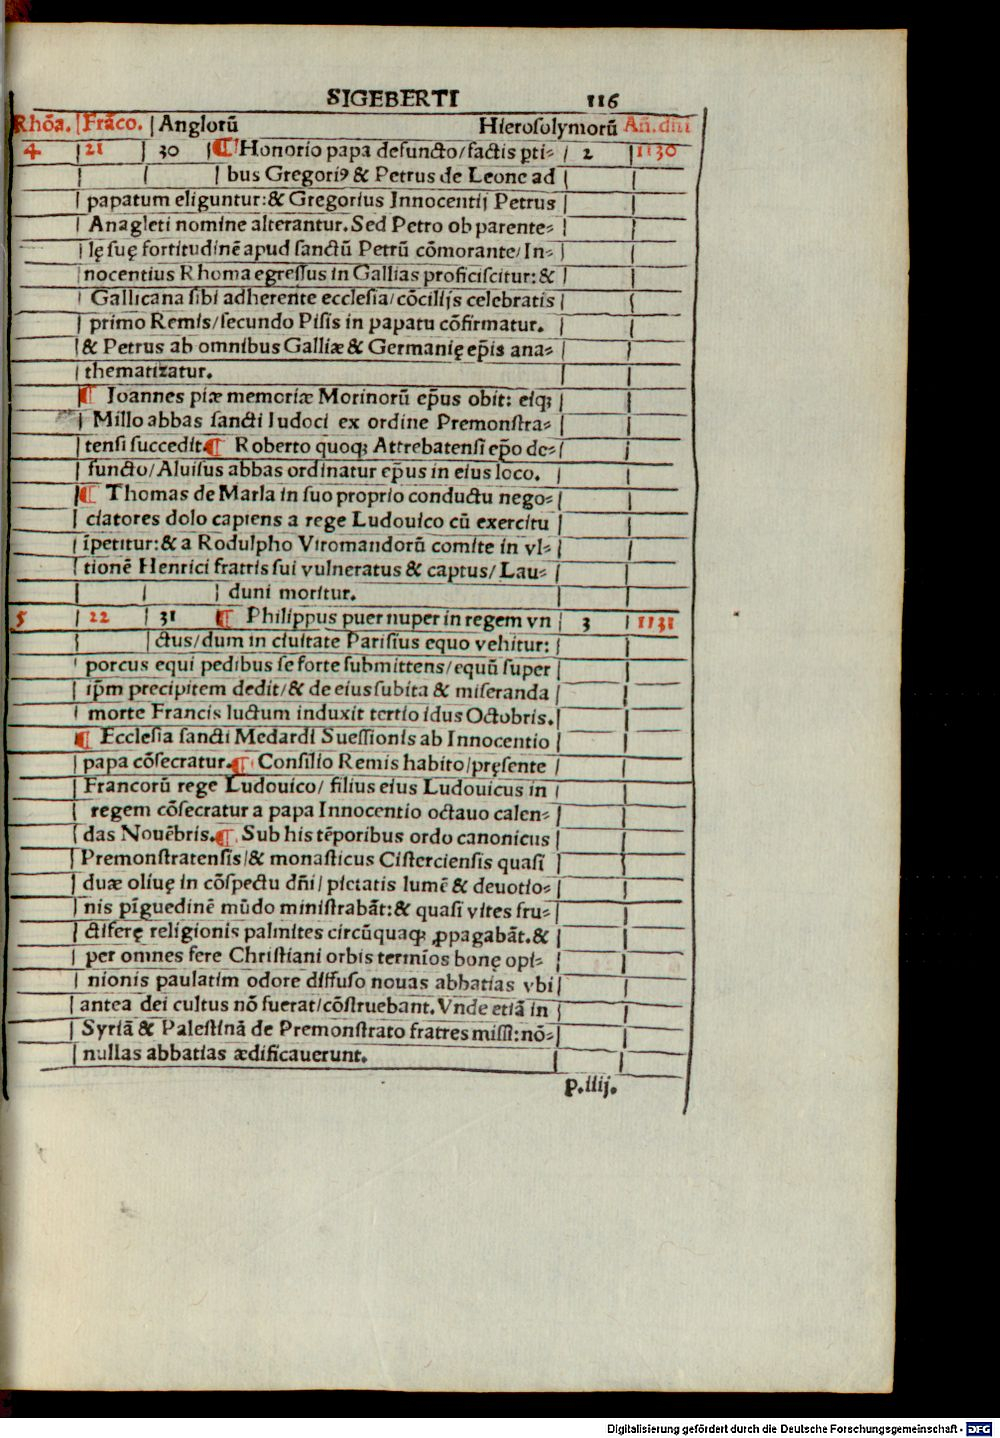 SIGEBERTI 116
Rhōa. Frāco. Anglorū Hierosolymorū Añ.dñi
4 21 30 ¶ Honorio papa defuncto/factis ꝑti⸗ 2 1130
bus Gregoriꝰ & Petrus de Leone ad
papatum eliguntur:& Gregorius Innocentij Petrus
Anagleti nomine alterantur. Sed Petro ob parente⸗
lę suę fortitudinē apud sanctū Petrū cōmorante/In⸗
nocentius Rhoma egressus in Gallias proficiscitur:&
Gallicana sibi adherente ecclesia/cōcilijs celebratis
primo Remis/secundo Pisis in papatu cōfirmatur.
& Petrus ab omnibus Galliæ & Germanię ep̄is ana⸗
thematizatur.
¶ Ioannes piæ memoriæ Morinorū ep̄us obit: eiqꝫ
Millo abbas sancti Iudoci ex ordine Premonstra⸗
tensi succedit. ¶ Roberto quoqꝫ Attrebatensi ep̄o de⸗
functo/Aluisus abbas ordinatur ep̄us in eius loco.
¶ Thomas de Marla in suo proprio conductu nego⸗
ciatores dolo capiens a rege Ludouico cū exercitu
īpetitur:& a Rodulpho Viromandorū comite in vl⸗
tionē Henrici fratris sui vulneratus & captus/Lau⸗
duni moritur.
5 22 31 ¶ Philippus puer nuper in regem vn 3 1131
ctus/dum in ciuitate Parisius equo vehitur:
porcus equi pedibus se forte submittens/equū super
ip̄m precipitem dedit/& de eius subita & miseranda
morte Francis luctum induxit tertio idus Octobris.
¶ Ecclesia sancti Medardi Suessionis ab Innocentio
papa cōsecratur. ¶ Consilio Remis habito/pręsente
Francorū rege Ludouico/ filius eius Ludouicus in
regem cōsecratur a papa Innocentio octauo calen⸗
das Nouēbris. ¶ Sub his tēporibus ordo canonicus
Premonstratensis/& monasticus Cisterciensis quasi
duæ oliuę in cōspectu dñi/ pietatis lumē & deuotio⸗
nis pīguedinē mūdo ministrabāt:& quasi vites fru⸗
ctiferę religionis palmites circūquaqꝫ ꝓpagabāt.&
per omnes fere Christiani orbis termīos bonę opi⸗
nionis paulatim odore diffuso nouas abbatias vbi
antea dei cultus nō fuerat/cōstruebant. Vnde etiā in
Syriā & Palestinā de Premonstrato fratres missi:nō⸗
nullas abbatias ædificauerunt.
p.iiij.
Digitalisierung gefördert durch die Deutsche Forschungsgemeinschaft - DFG